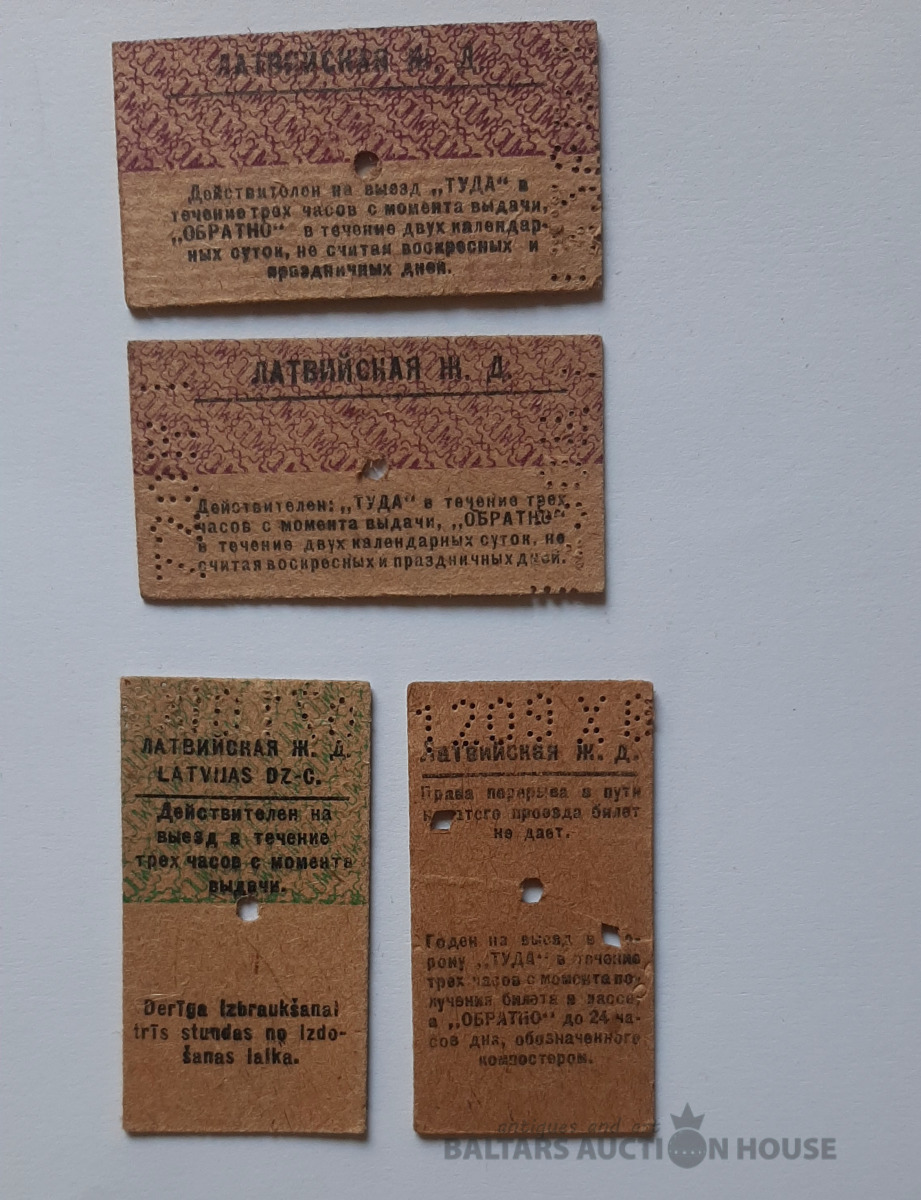 ЛАТВИЙСКАЯ Ж. Д.
Действителен на выезд „ТУДА“ в
течение трех часов с момента выдачи,
„ОБРАТНО“ в течение двух календар-
ных суток, не считая воскресных и
праздничных дней.
ЛАТВИЙСКАЯ Ж. Д.
Действителен: „ТУДА“ в течение трех
часов с момента выдачи, „ОБРАТНО“
в течение двух календарных суток, не
считая воскресных и праздничных дней.
ЛАТВИЙСКАЯ Ж. Д.
LATVIJAS DZ-C.
Действителен на
выезд в течение
трех часов с момента
выдачи.
Derīga izbraukšanai
trīs stundas no izdo-
šanas laika.
1209 X 8
Латвийская Ж. Д.
Права перерыва в пути
проезда билет
не дает.
Годен на выезд в
рону „ТУДА“ в течение
трех часов с момента по-
лучения билета в кассе,
а „ОБРАТНО“ до 24 ча-
сов дня, обозначенного
компостером.
antiques and art
BALTARS AUCTION HOUSE